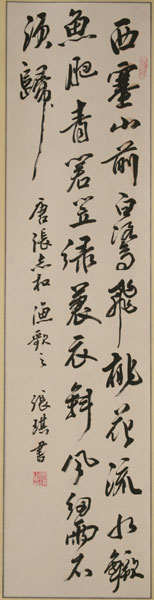 西塞山前白鷺飛桃花流水鱖
魚肥青箬笠綠蓑衣斜風細雨不
須歸
唐張志和漁歌之
張琪書